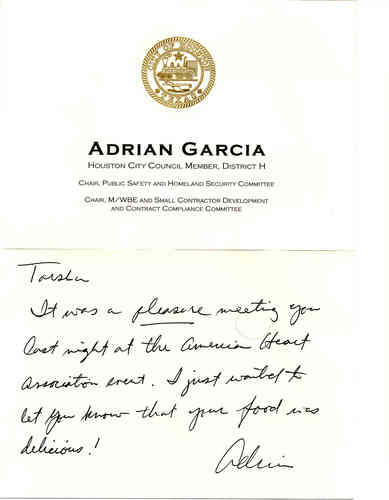 CITY OF HOUSTON
TEXAS
ADRIAN GARCIA
HOUSTON CITY COUNCIL MEMBER, DISTRICT H
CHAIR, PUBLIC SAFETY AND HOMELAND SECURITY COMMITTEE
CHAIR, M/WBE AND SMALL CONTRACTOR DEVELOPMENT
AND CONTRACT COMPLIANCE COMMITTEE
Tarsha
It was a pleasure meeting you
last night at the American Heart
Association event. I just wanted to
let you know that your food was
delicious!
Adrian